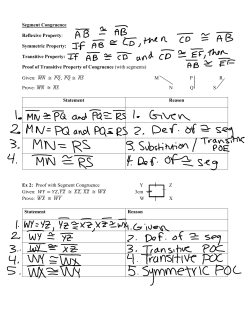 Segment Congruence
Reflexive Property: AB ≅ AB
Symmetric Property: If AB ≅ CD, then CD ≅ AB
Transitive Property: If AB ≅ CD and CD ≅ EF, then AB ≅ EF
Proof of Transitive Property of Congruence (with segments)
Given: MN ≅ PQ, PQ ≅ RS
Prove: MN ≅ RS
M P R
N Q S
Statement Reason
1. MN ≅ PQ and PQ ≅ RS 1. Given
2. MN = PQ and PQ = RS 2. Def. of ≅ seg
3. MN = RS 3. Substitution / Transitive POE
4. MN ≅ RS 4. Def. of ≅ seg
Ex 2: Proof with Segment Congruence
Given: WY = YZ, YZ ≅ XZ, XZ ≅ WX
Prove: WX ≅ WY
Y Z
3cm
W X
Statement Reason
1. WY = YZ, YZ ≅ XZ, XZ ≅ WX 1. Given
2. WY ≅ YZ 2. Def of ≅ seg
3. WY ≅ XZ 3. Transitive POC
4. WY ≅ WX 4. Transitive POC
5. WX ≅ WY 5. Symmetric POC